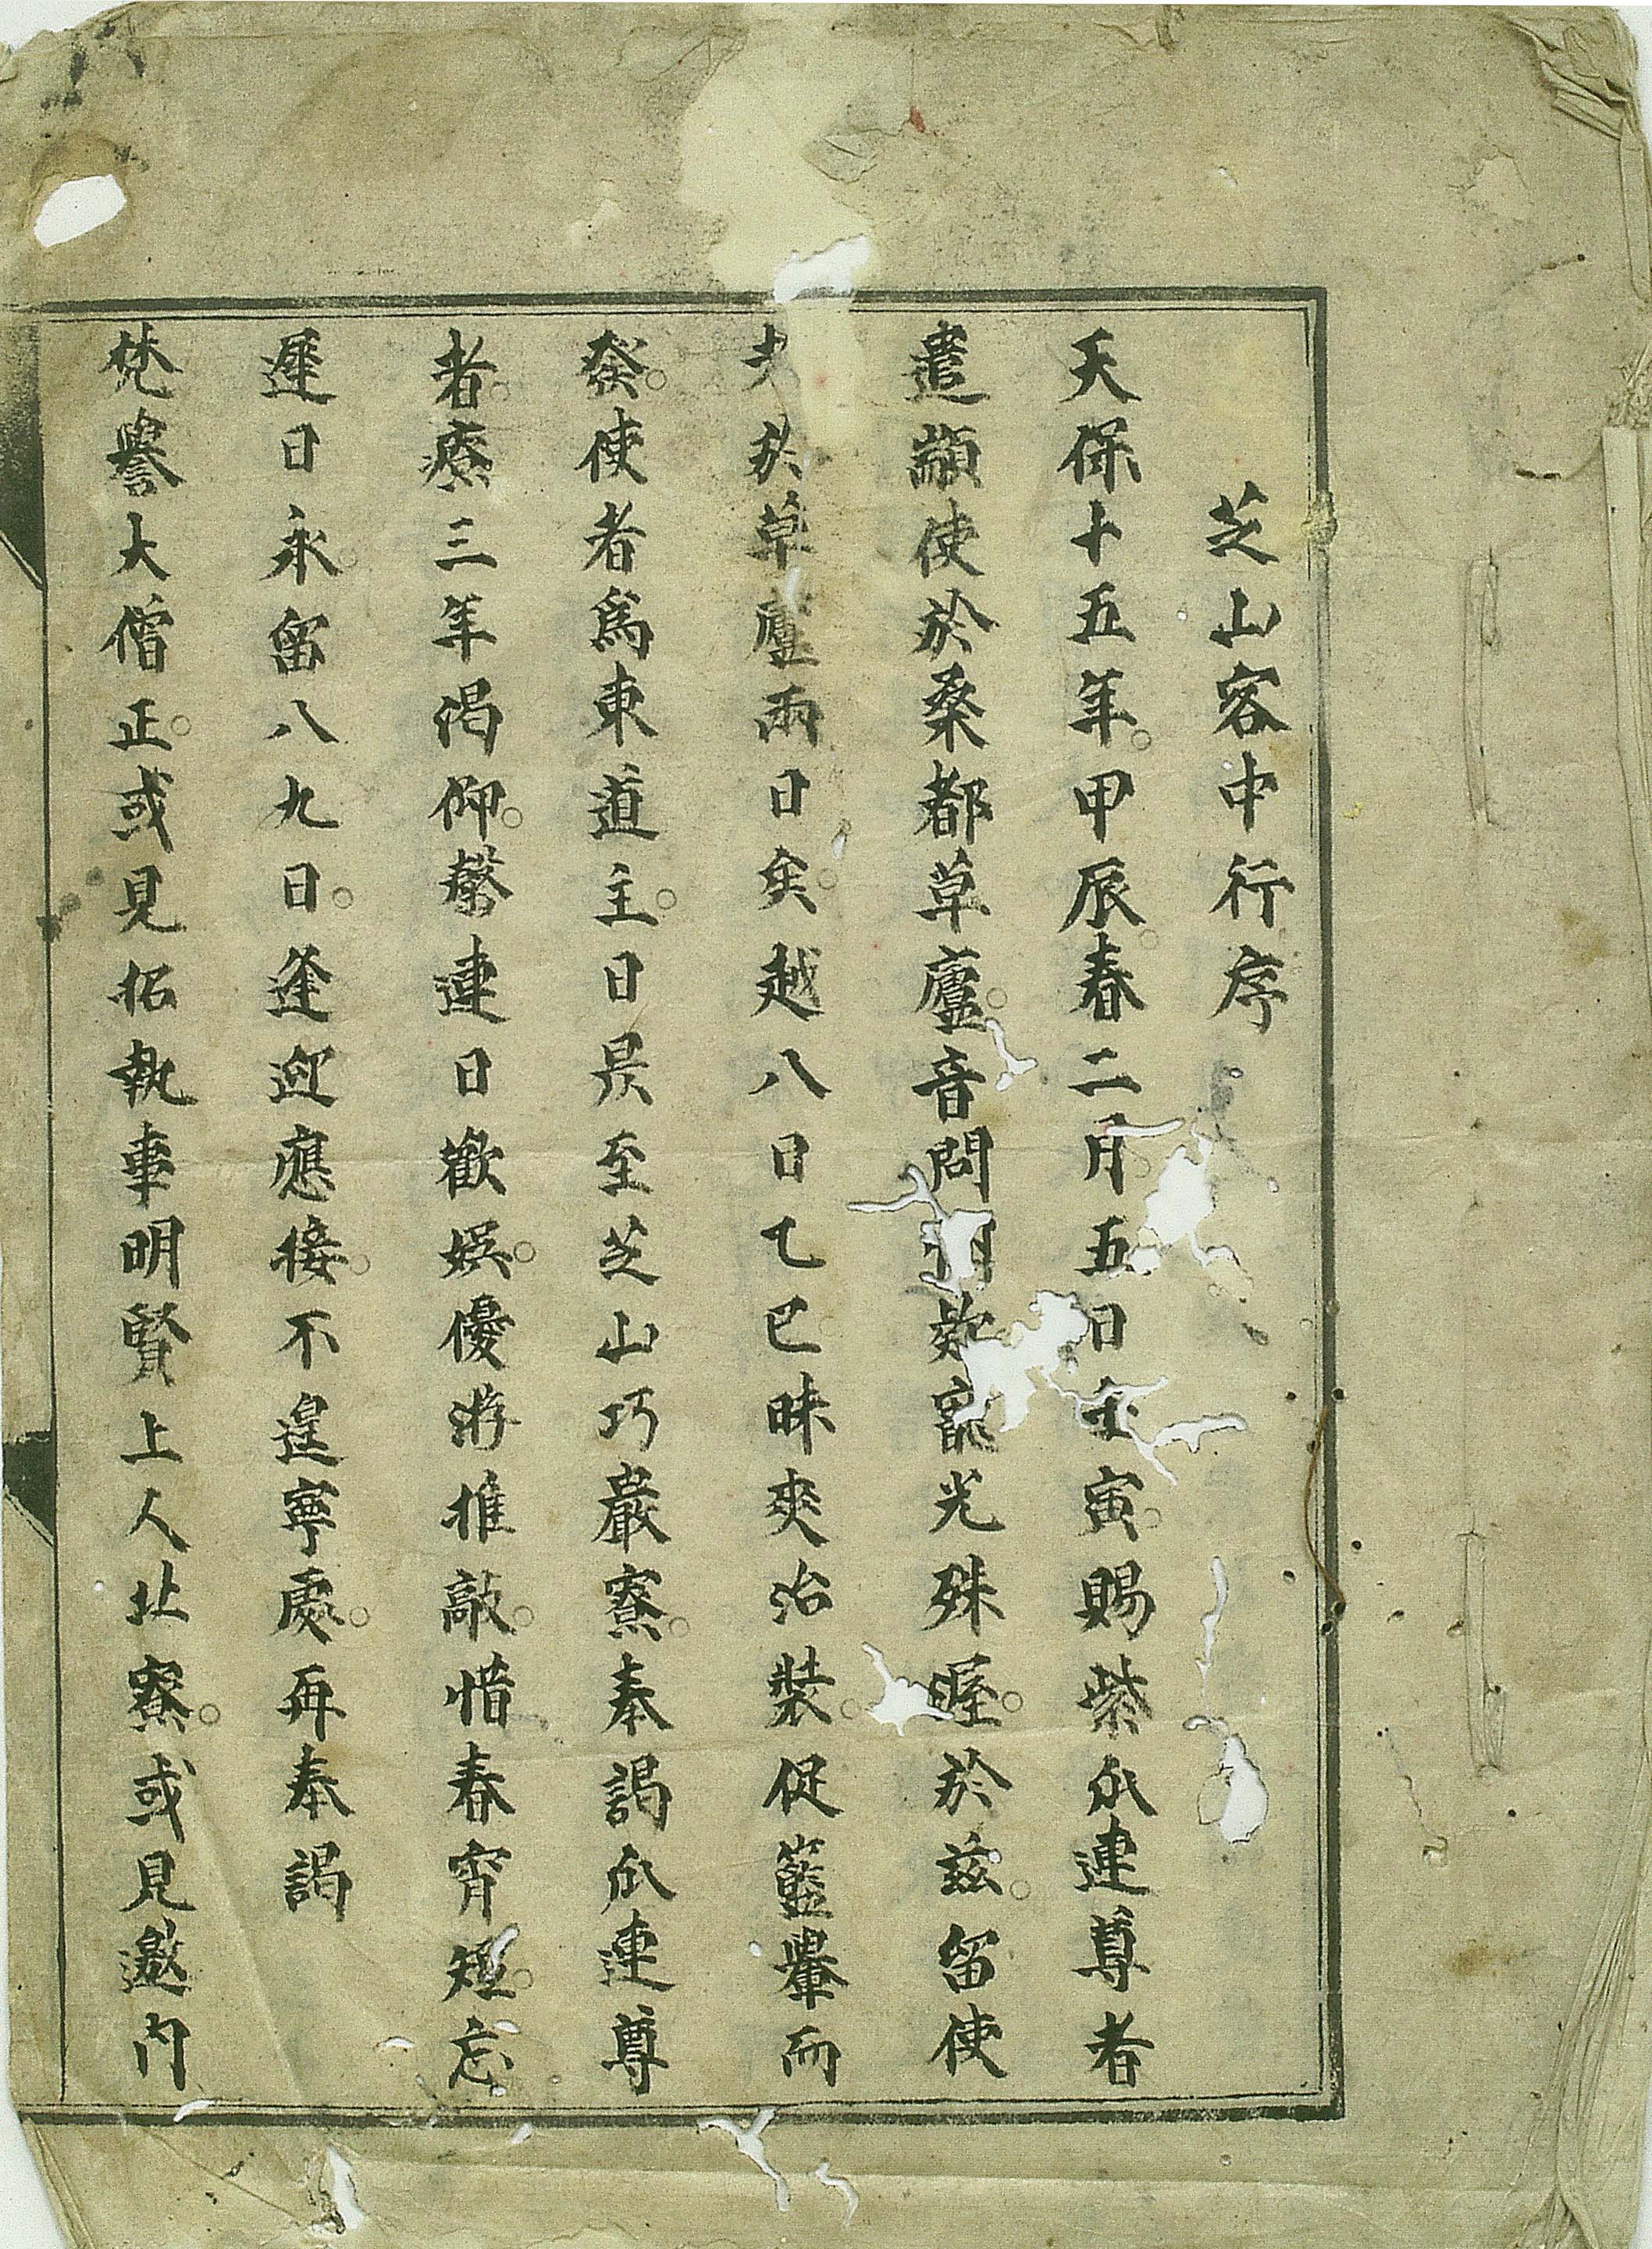 芝山客中行序
天保十五年。甲辰。春二月。五日壬寅。賜紫瓜連尊者
遣顓使於桑都草廬。音問欵寵光殊渥。於茲。留使
於草廬兩日矣。越八日乙巳昧爽治裝。促籃轝而
發。使者為東道主。日昃至芝山巧嚴寮。奉謁瓜連尊
者。療三年渇仰。罄連日歡娯。優游推敲。惜春宵短。忘
遲日永。留八九日。逢迎應接。不遑寧處。再奉謁
梵譽大僧正。或見招執事明賢上人北寮。或見邀内